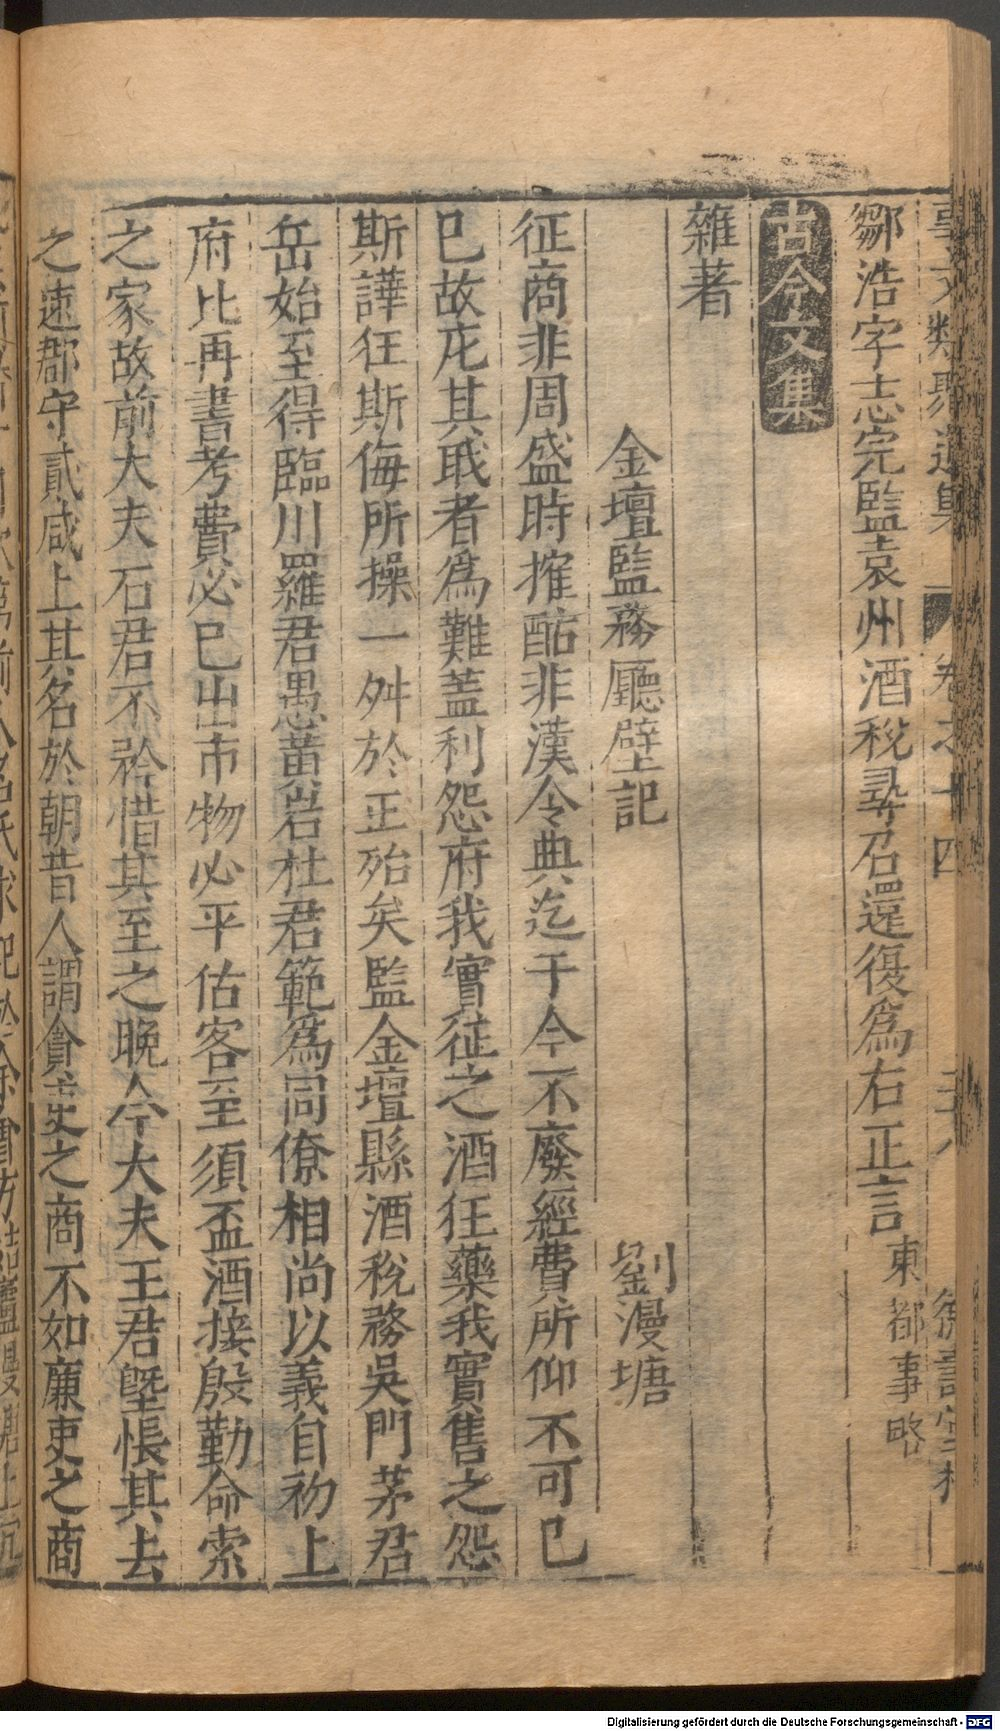 鄒浩字志完監袁州酒稅尋召還復爲右正言東都事略
古今文集
雜著
金壇監務廳壁記　劉漫塘
征商非周盛時搉酤非漢令典迄于今不廢經費所仰不可已
已故庀其戢者爲難蓋利怨府我實征之酒狂藥我實售之怨
斯謗狂斯侮所操一舛於正殆矣監金壇縣酒稅務吳門茅君
岳始至得臨川羅君愚黃岩杜君範爲同僚相尚以義自初上
府比再書考費必已出市物必平估客至須盃酒接殷勤命索
之家故前大夫石君不矜惜其至之晩今大夫王君曁悵其去
之速郡守貳咸上其名於朝昔人謂貪吏之商不如廉吏之商
Digitalisierung gefördert durch die Deutsche Forschungsgemeinschaft - DFG